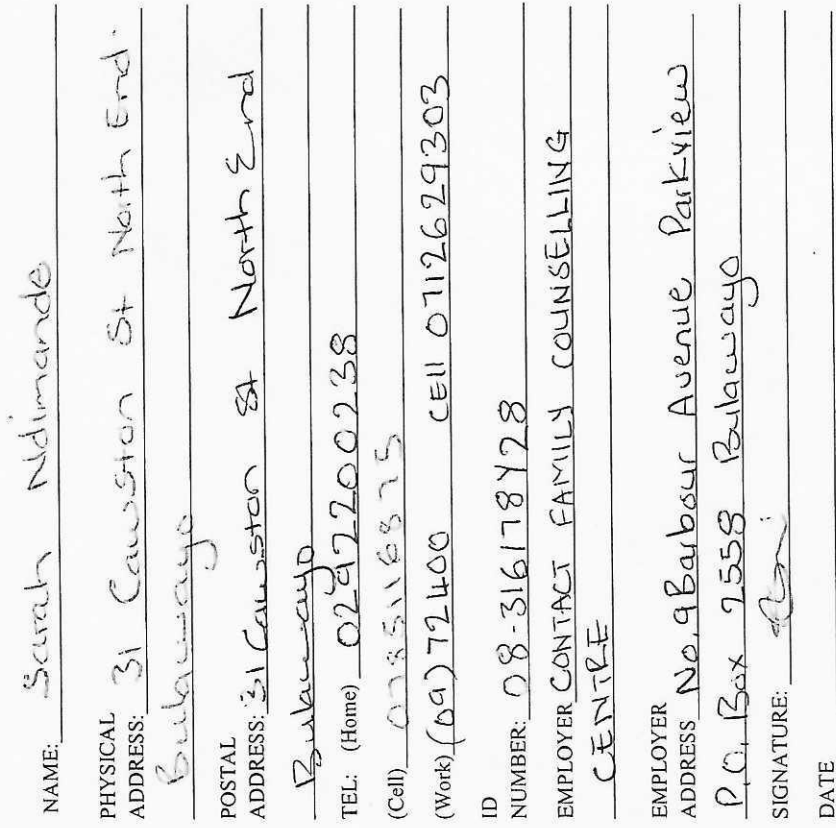 NAME: Sarah Ndimande
PHYSICAL
ADDRESS: 31 Cawston St North End.
Bulawayo
POSTAL
ADDRESS: 31 Cawston St North End
Bulawayo
TEL: (Home) 0292200238
(Cell) 0785116875
(Work) (09) 72400 CEll 0712629303
ID
NUMBER: 08-316178Y28
EMPLOYER CONTACT FAMILY COUNSELLING
CENTRE
EMPLOYER
ADDRESS No. 9 Barbour Avenue Parkview
P.O. Box 2558 Bulawayo
SIGNATURE:
DATE